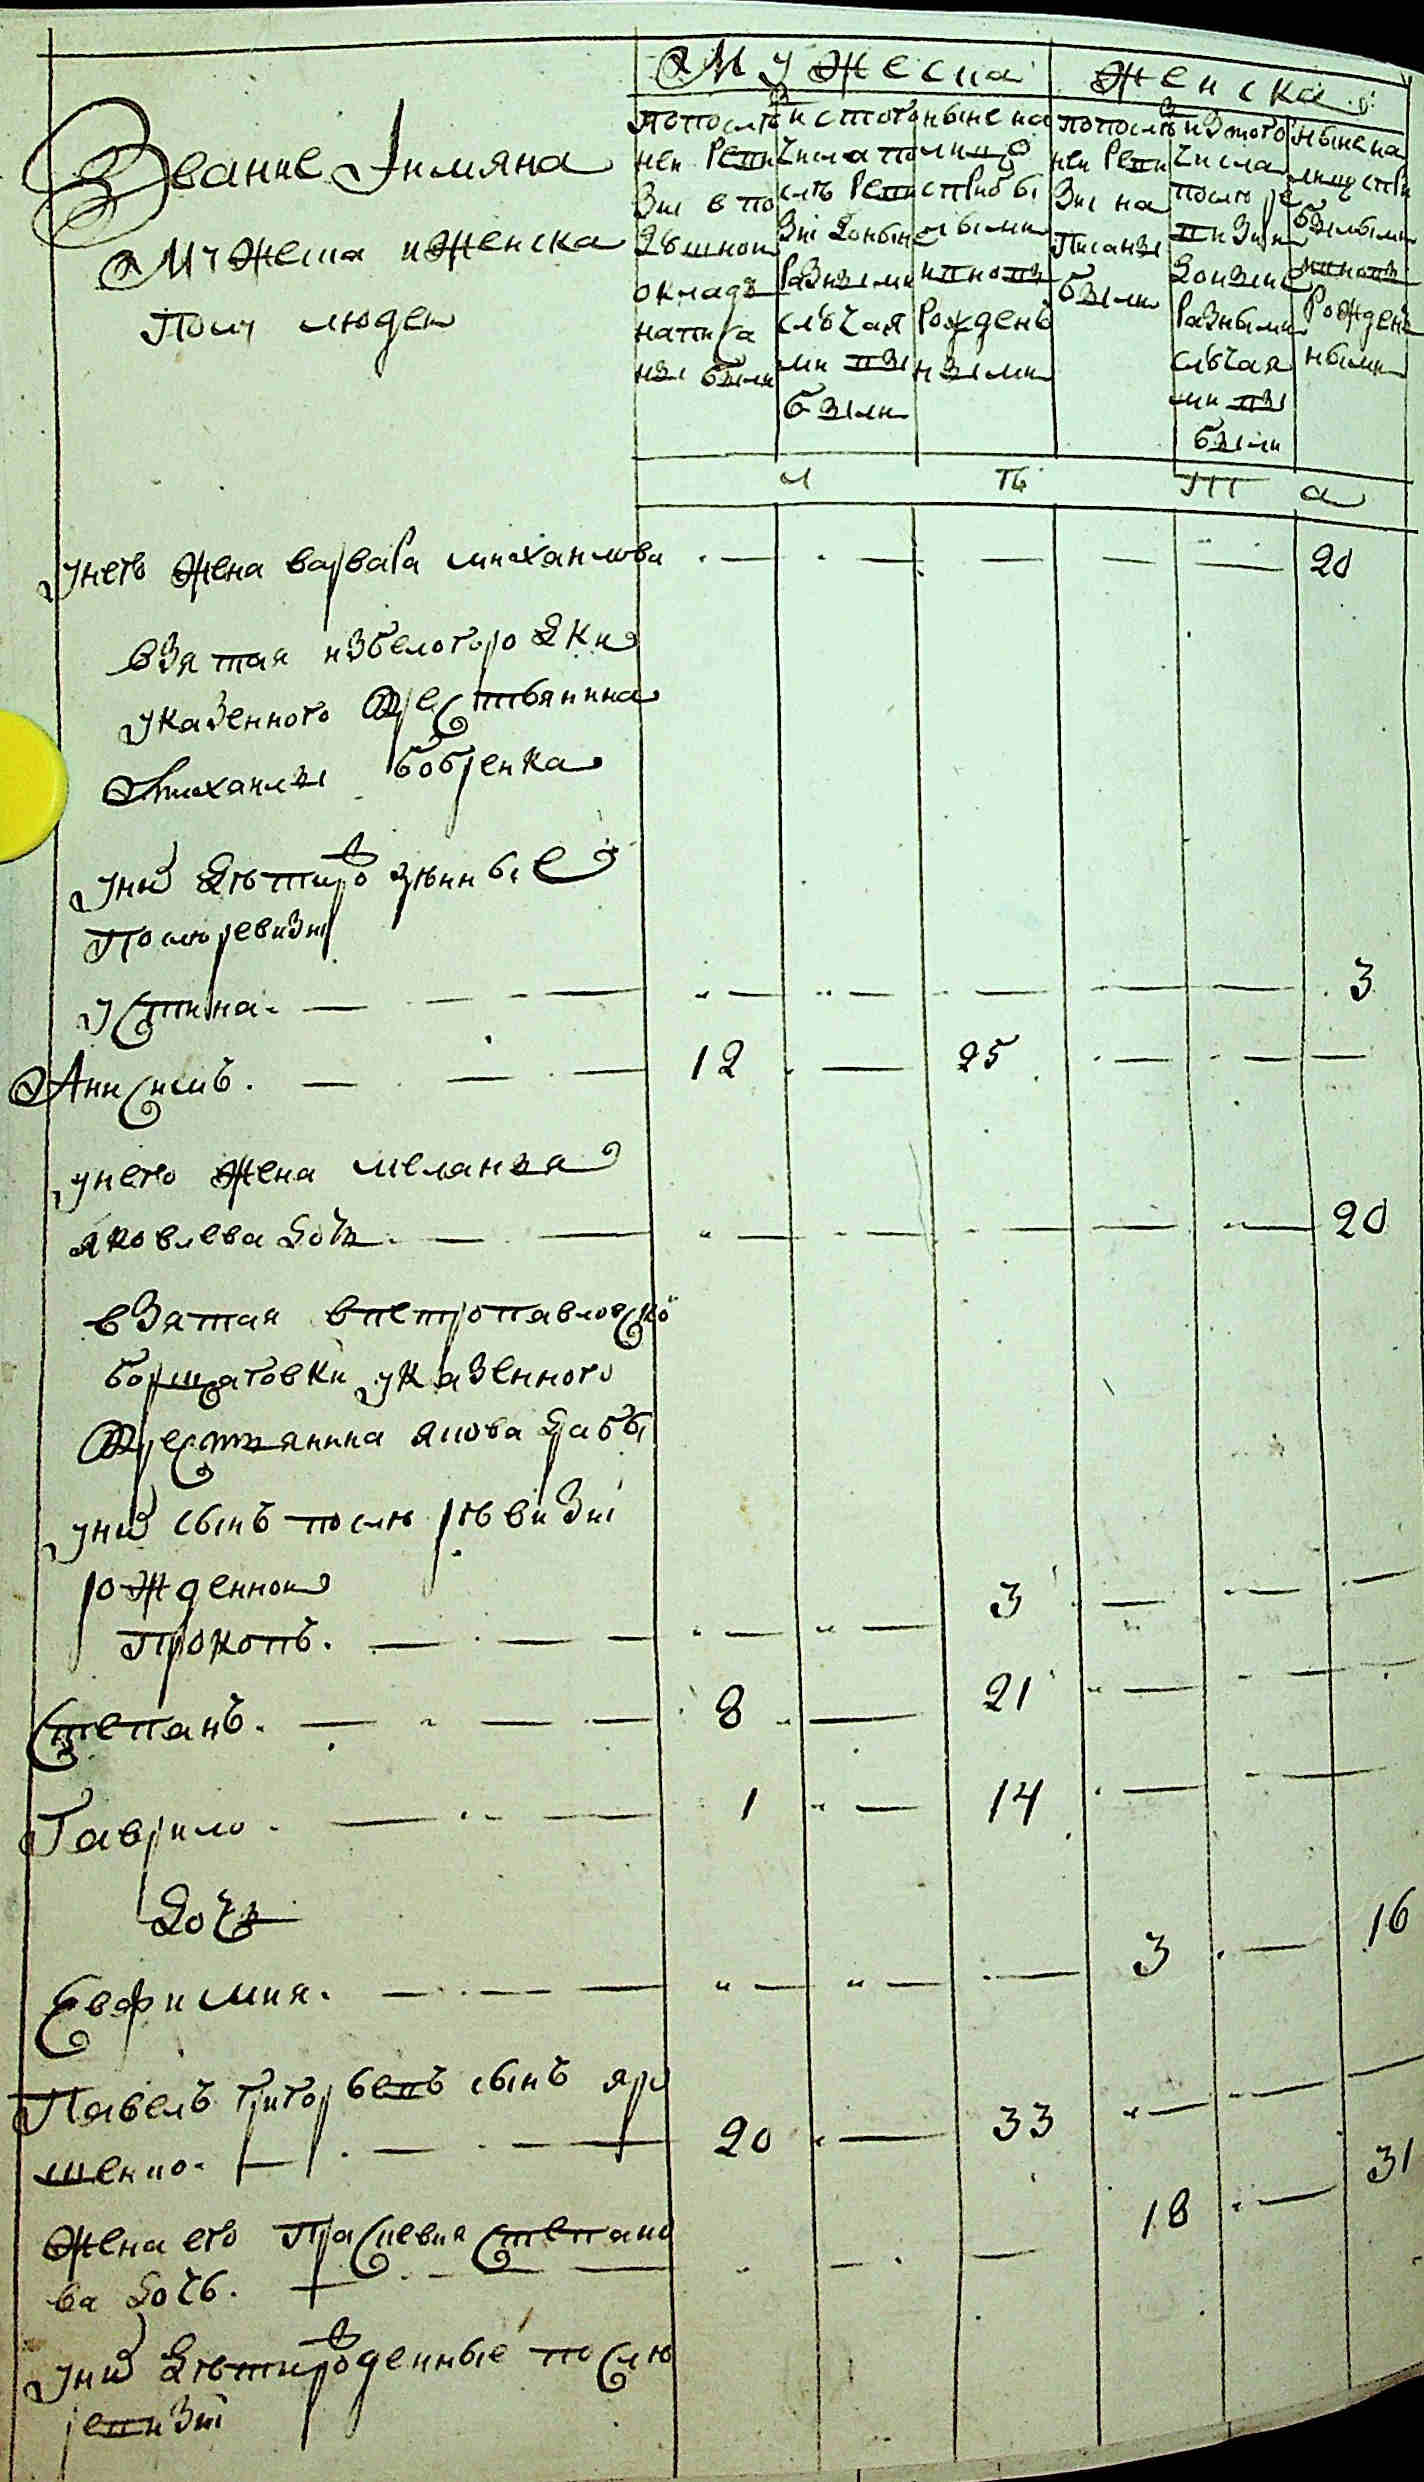 Мужеска
Женска
Звание Имяна
Мужеска и Женска
Полу людеи
По после
ней Реви
зиі в по
душной
окладъ
написа
ны были
ис того
числа по
слѣ Реви
зиі доныне
Разными
случая
ми вы
были
ныне на
лицо
с прибы
лыми
и вново
Рожден
ными
по после
ней Реви
зиі на
Писаны
были
из того
числа
после ре
визиі
доныне
Разными
случая
ми вы
были
ныне на
лицо с при
былыми
и вново
Рожден
ными
л ѣ т а
у него жена варвара михаилова — — — — — 20
взятая из белогородки
у казенного крестьянина
Михаилы бобренка
у них дѣти рожденные
После ревизиі
устина. — — — — — — 3
Анисимъ. — 12 — 25 — — —
у него жена меланья
яковлева дочь. — — — — — — 20
взятая в петропавловской
борщаговки у казенного
крестьянина якова
у них сынъ после ревизиі
рожденной
Прокопъ. — — — 3 — — —
Степанъ. — 8 — 21 — — —
Гаврило. — 1 — 14 — — —
Дочь
Евфимия. — — — — 3 — 16
Павелъ григорьевъ сынъ яро
шенко. — 20 — 33 — — —
Жена его Прасковия степано
ва дочь. — — — — 18 — 31
у них дѣти рожденные после
ревизиі